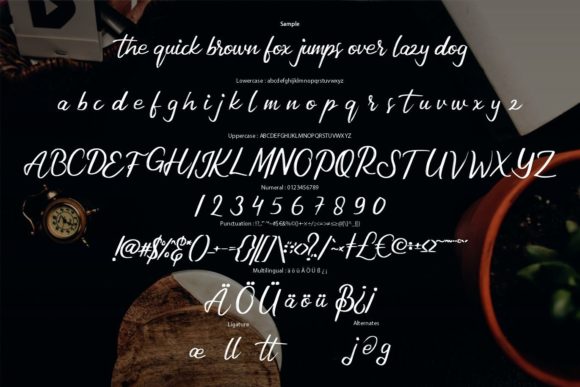 Sample
the quick brown fox jumps over lazy dog
Lowercase : abcdefghijklmnopqrstuvwxyz
a b c d e f g h i j k l m n o p q r s t u v w x y z
Uppercase : ABCDEFGHIJKLMNOPQRSTUVWXYZ
ABCDEFGHIJKLMNOPQRSTUVWXYZ
Numeral : 0123456789
1 2 3 4 5 6 7 8 9 0
Punctuation :
Multilingual : ä ö ü Ä Ö Ü ß ¿ ¡
Ä Ö Ü ä ö ü ß ¿ ¡
Ligature Alternates
æ ll tt j @ g